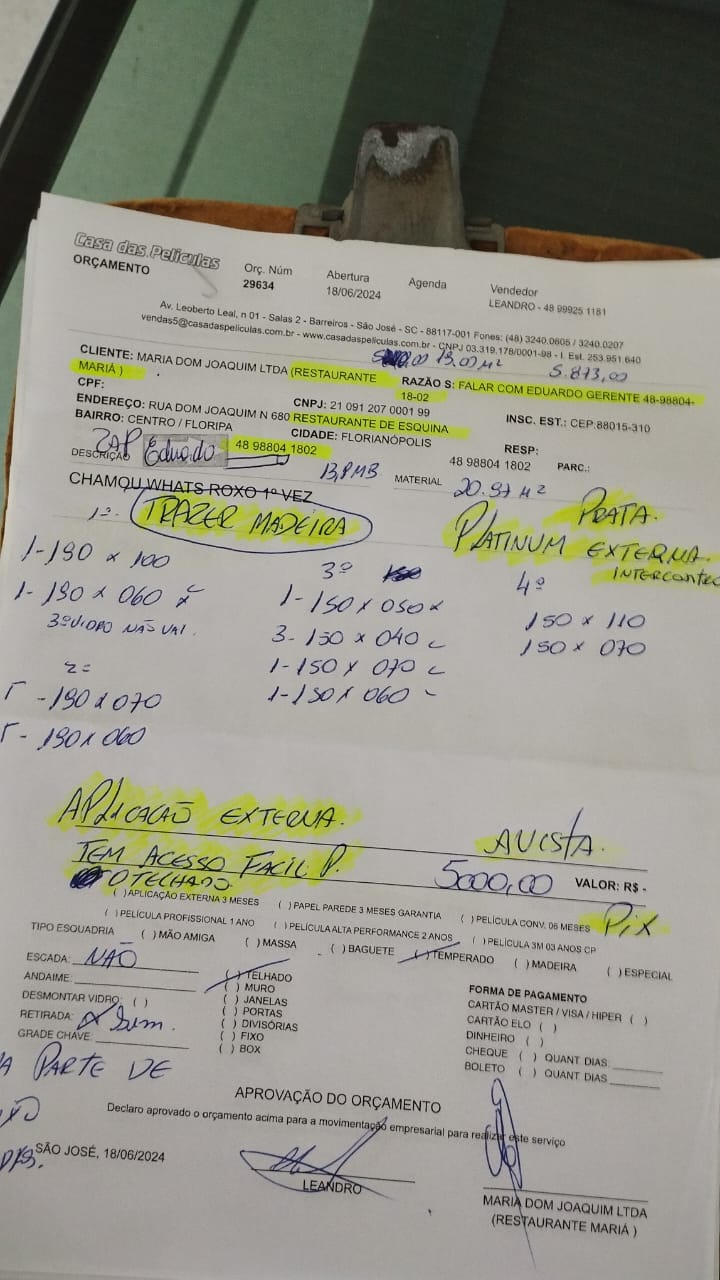 Casa das Películas
ORÇAMENTO
Orç. Núm
29634
Abertura
18/06/2024
Agenda
Vendedor
LEANDRO - 48 99925 1181
Av. Leoberto Leal, n 01 - Salas 2 - Barreiros - São José - SC - 88117-001 Fones: (48) 3240.0605 / 3240.0207
vendas5@casadaspeliculas.com.br - www.casadaspeliculas.com.br - CNPJ 03.319.178/0001-98 - I. Est. 253.951.640
13.00 M² 5.873,00
CLIENTE: MARIA DOM JOAQUIM LTDA (RESTAURANTE
MARIÁ )
RAZÃO S: FALAR COM EDUARDO GERENTE 48-98804-
18-02
CPF:
CNPJ: 21 091 207 0001 99
INSC. EST.: CEP:88015-310
ENDEREÇO: RUA DOM JOAQUIM N 680 RESTAURANTE DE ESQUINA
BAIRRO: CENTRO / FLORIPA
CIDADE: FLORIANÓPOLIS
RESP:
ZAP Eduardo 48 98804 1802
48 98804 1802 PARC.:
DESCRIÇÃO
13,8MB
MATERIAL 20.97 M²
CHAMOU WHATS ROXO 1º VEZ
1º- TRAZER MADEIRA
PRATA.
PLATINUM EXTERNA.
INTERCONTEC
1-190 x 100
1-190 x 060
3º VIDRO NÃO VAI.
2º
-190 x 070
-190 x 060
3º
1-150 x 050
3-150 x 040
1-150 x 070
1-150 x 060
4º
150 x 110
150 x 070
APLICAÇÃO EXTERNA.
AVISTA.
TEM ACESSO FACIL P.
O TELHADO.
5000,00 VALOR: R$ -
( ) APLICAÇÃO EXTERNA 3 MESES ( ) PAPEL PAREDE 3 MESES GARANTIA ( ) PELÍCULA CONV. 06 MESES PIX
( ) PELÍCULA PROFISSIONAL 1 ANO ( ) PELÍCULA ALTA PERFORMANCE 2 ANOS ( ) PELÍCULA 3M 03 ANOS CP
TIPO ESQUADRIA ( ) MÃO AMIGA ( ) MASSA ( ) BAGUETE ( ) TEMPERADO ( ) MADEIRA ( ) ESPECIAL
ESCADA: NÃO
ANDAIME:
DESMONTAR VIDRO: ( )
RETIRADA: x Sim.
GRADE CHAVE:
( ) TELHADO
( ) MURO
( ) JANELAS
( ) PORTAS
( ) DIVISÓRIAS
( ) FIXO
( ) BOX
FORMA DE PAGAMENTO
CARTÃO MASTER / VISA / HIPER ( )
CARTÃO ELO ( )
DINHEIRO ( )
CHEQUE ( ) QUANT DIAS
BOLETO ( ) QUANT DIAS
A PARTE DE
APROVAÇÃO DO ORÇAMENTO
Declaro aprovado o orçamento acima para a movimentação empresarial para realizar este serviço
SÃO JOSÉ, 18/06/2024
LEANDRO
MARIA DOM JOAQUIM LTDA
(RESTAURANTE MARIÁ )